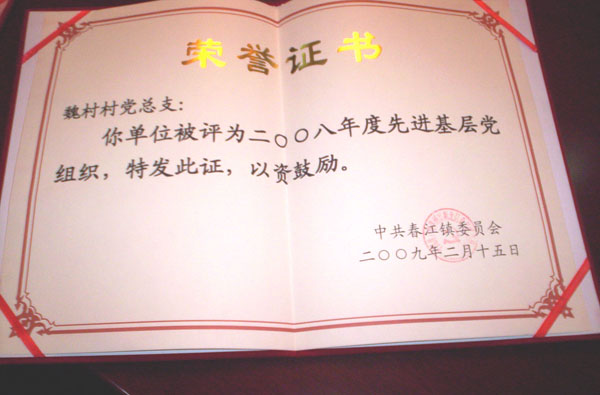 荣誉证书
魏村村党总支：
你单位被评为二〇〇八年度先进基层党
组织，特发此证，以资鼓励。
中共春江镇委员会
二〇〇九年二月十五日